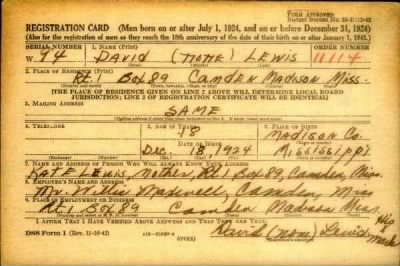 FORM APPROVED
REGISTRATION CARD (Men born on or after July 1, 1924, and on or before December 31, 1924)
(Also for the registration of men as they reach the 18th anniversary of the date of their birth on or after January 1, 1943.)
SERIAL NUMBER 1. NAME (Print) ORDER NUMBER
W 94 DAVID (NONE) LEWIS 11114
(First) (Middle) (Last)
2. PLACE OF RESIDENCE (Print)
Rt. 1 Box 89 Camden Madison Miss.
[THE PLACE OF RESIDENCE GIVEN ON LINE 2 ABOVE WILL DETERMINE LOCAL BOARD
JURISDICTION; LINE 2 OF REGISTRATION CERTIFICATE WILL BE IDENTICAL]
3. MAILING ADDRESS
SAME
4. TELEPHONE 5. AGE IN YEARS 6. PLACE OF BIRTH
18 Madison Co.
DATE OF BIRTH
Dec. 18, 1924 Mississippi
7. NAME AND ADDRESS OF PERSON WHO WILL ALWAYS KNOW YOUR ADDRESS
KATE LEWIS, Mother, Rt. 1, Box 89, Camden, Miss.
8. EMPLOYER'S NAME AND ADDRESS
Mr. Willie Maxwell, Camden, Miss
9. PLACE OF EMPLOYMENT OR BUSINESS
Rt. 1 Box 89 Camden Madison Miss.
I AFFIRM THAT I HAVE VERIFIED ABOVE ANSWERS AND THAT THEY ARE TRUE.
DSS Form 1 (Rev. 11-16-42) David (none) Lewis
His
Mark